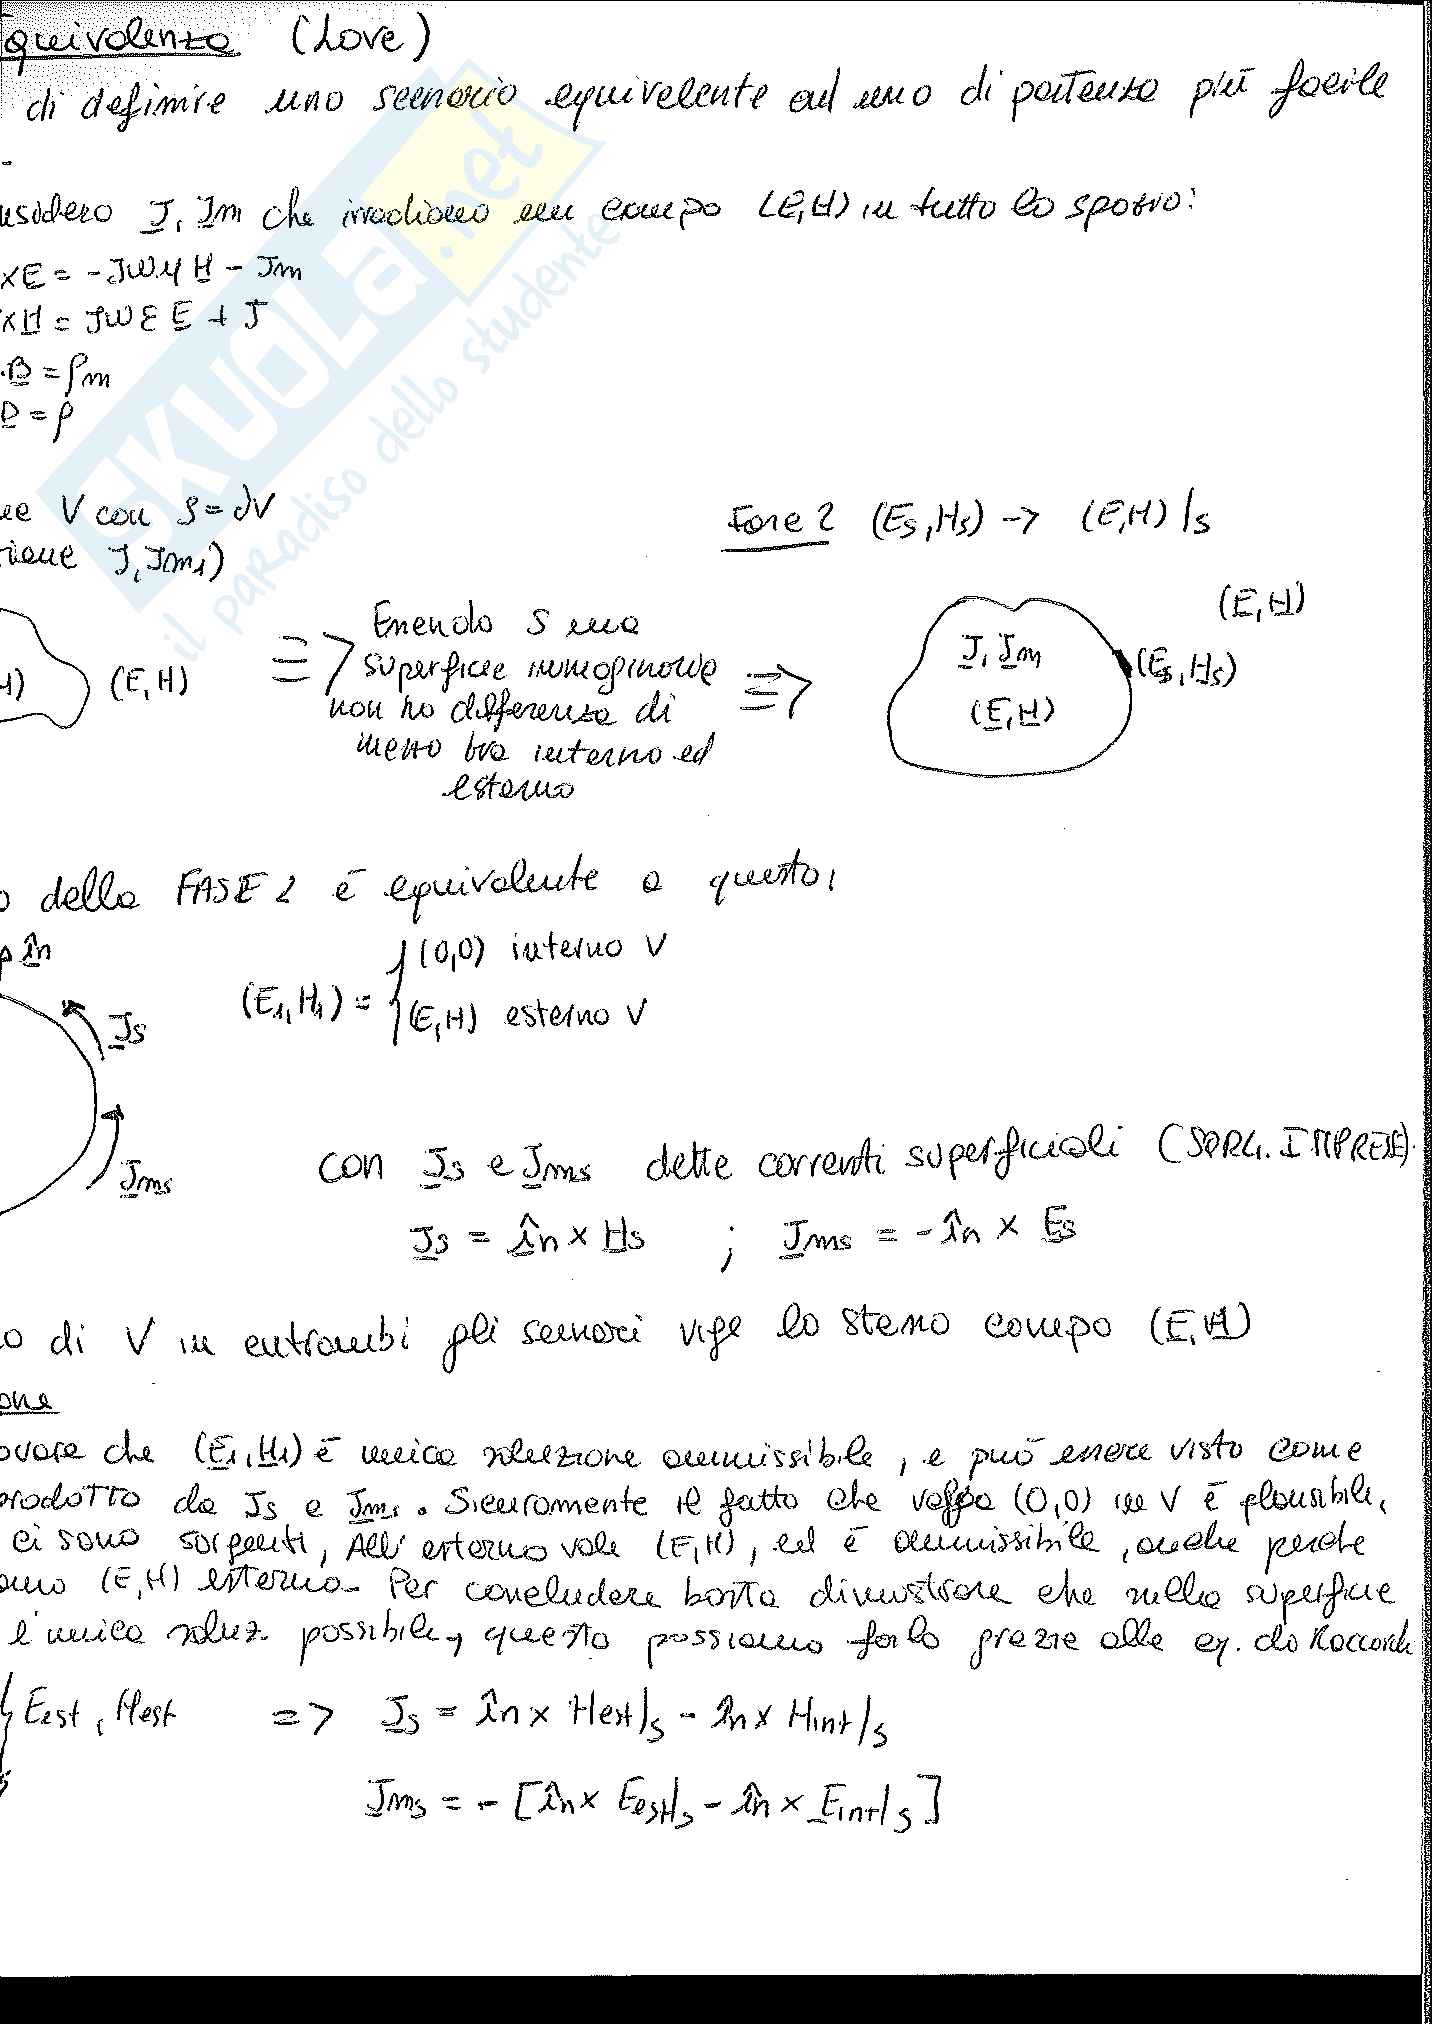 quivalenza (Love)
di definire uno scenario equivalente ad uno di partenza più facile
-
nsidero J, Jm che irradiano un campo (E,H) in tutto lo spazio:
×E = -JωμH - Jm
×H = JωεE + J
·B = ρm
D = ρ
SKUOLA.net
il paradiso dello studente
ue V con S=∂V
tiene J, Jm1)
Fase 2 (Es,Hs) -> (E,H)|s
H)
(E,H)
=>
Essendo S una
superficie immaginaria
non ho differenza di
mezzo tra interno ed
esterno
=>
J, Jm
(E,H)
(Es,Hs)
(E,H)
o della FASE 2 è equivalente a questo,
în
Js
Jms
(E1,H1) = { (0,0) interno V
(E,H) esterno V
con Js e Jms dette correnti superficiali (SORG. IMPRESSE).
Js = în × Hs ; Jms = -în × Es
o di V in entrambi gli scenari vige lo stesso campo (E,H)
one
ovare che (E1,H1) è unica soluzione ammissibile, e può essere visto come
prodotto da Js e Jms. Sicuramente il fatto che valga (0,0) in V è plausibile,
ci sono sorgenti, All' esterno vale (E,H), ed è ammissibile, anche perché
amo (E,H) esterno. Per concludere basta dimostrare che sulla superficie
l'unica soluz. possibile, questo possiamo farlo grazie alle eq. di Raccordo
{ Eest, Hest => Js = în × Hest|s - în × Hint|s
Jms = -[în × Eest|s - în × Eint|s]